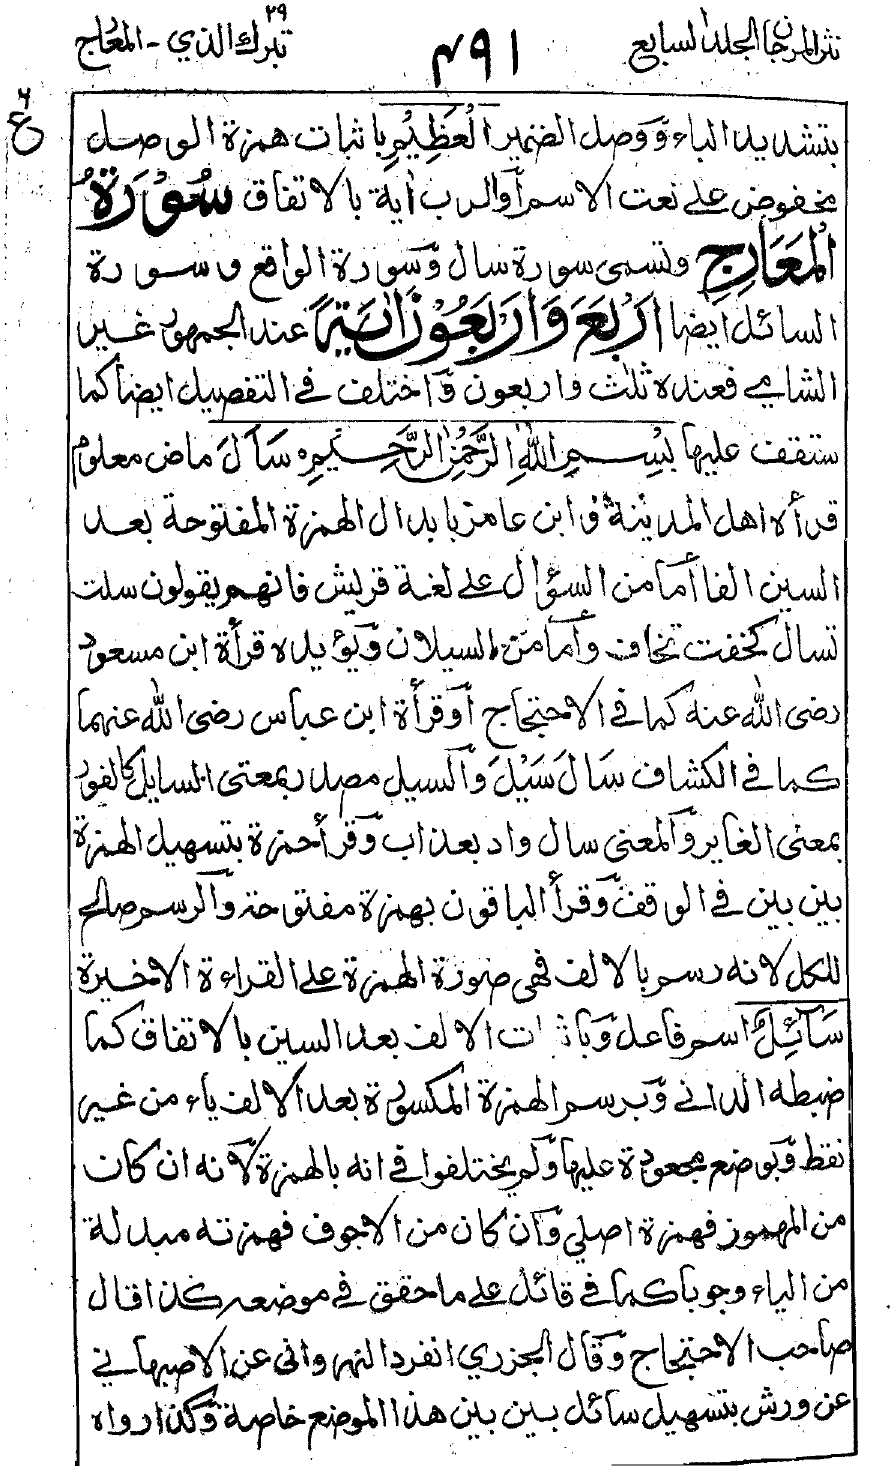 نثر المرجان الجلد السابع
٤٩١
تبرك الذي ٢٩ - المعارج
ع
بتشديد الباء ووصل الضمير العَظِيْمِ باثبات همزة الوصل
مخفوض على نعت الاسم أو الرب اٰية بالاتفاق سُوْرَةُ
المَعَارِجِ وتسمى سورة سال وسورة الواقع وسورة
السائل ايضا اَرْبَعَ وَاَرْبَعُوْنَ اٰيَةً عند الجمهور غير
الشامي فعنده ثلث واربعون واختلف في التفصيل ايضا كما
ستقف عليها بِسْمِ اللهِ الرَّحْمٰنِ الرَّحِيْمِ سَاَلَ ماض معلوم
قرأه اهل المدينة وابن عامر بابدال الهمزة المفتوحة بعد
السين الفا أما من السؤال على لغة قريش فانهم يقولون سلت
تسال كخفت تخاف وأما من السيلان ويؤيده قرأة ابن مسعود
رضى الله عنه كما في الاحتجاج أو قرأة ابن عباس رضى الله عنهما
كما في الكشاف سَالَ سَيْلَ والسيل مصدر بمعنى السايل كالغور
بمعنى الغاير والمعنى سال واد بعذاب وقرأ حمزة بتسهيل الهمزة
بين بين في الوقف وقرأ الباقون بهمزة مفتوحة والرسم صالح
للكل لانه رسم بالالف فهى صورة الهمزة على القراءة الاخيرة
سَآئِلٌ اسم فاعل وباثبات الالف بعد السين بالاتفاق كما
ضبطه الداني وبرسم الهمزة المكسورة بعد الالف ياء من غير
نقط وبوضع مجعودة عليها ولم يختلفوا في انه بالهمزة لانه ان كان
من المهموز فهمزة اصلي وان كان من الاجوف فهمزته مبدلة
من الياء وجوبا كما في قائل على ما حقق في موضعه كذا قال
صاحب الاحتجاج وقال الجزري انفرد النهرواني عن الاصبهاني
عن ورش بتسهيل سائل بين بين هذا الموضع خاصة وكذا رواه